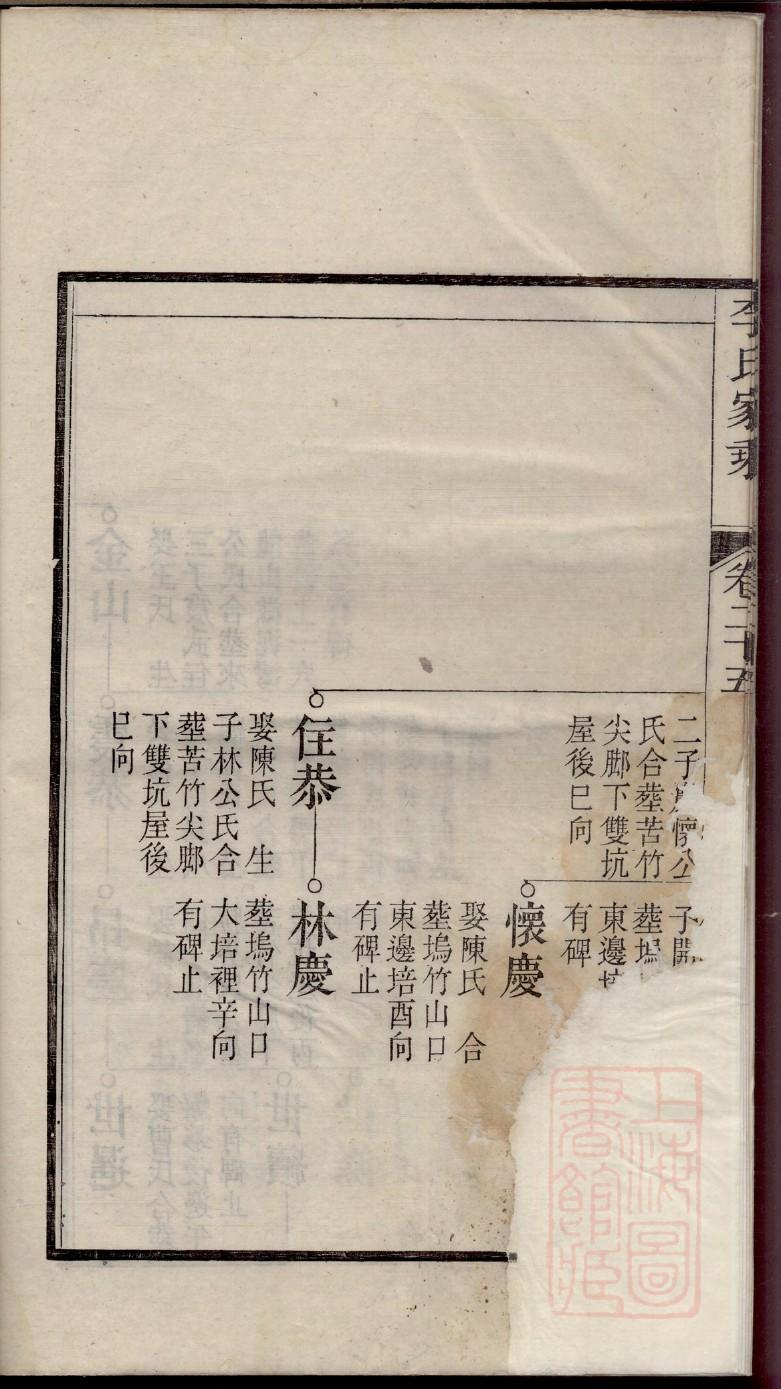 李氏家乘
卷二十五
二子
懷公
氏合塟苦竹
尖脚下雙坑
屋後巳向
子開
塟塢
東邊培
有碑
懷慶
娶陳氏 合
塟塢竹山口
東邊培酉向
有碑止
任恭
娶陳氏 生
子林公氏合
塟苦竹尖脚
下雙坑屋後
巳向
林慶
塟塢竹山口
大培裡辛向
有碑止
上海圖
書館藏